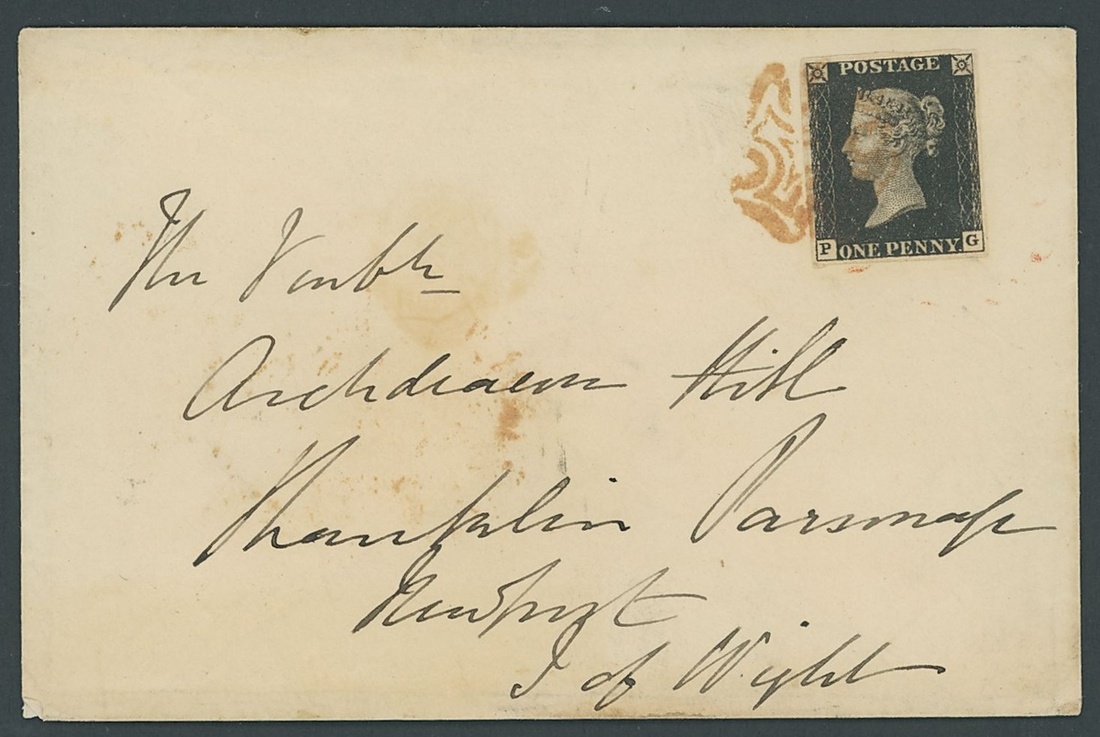 POSTAGE
P ONE PENNY G
The Venble
Archdeacon Hill
Shanklin Parsonage
Newport
I of Wight